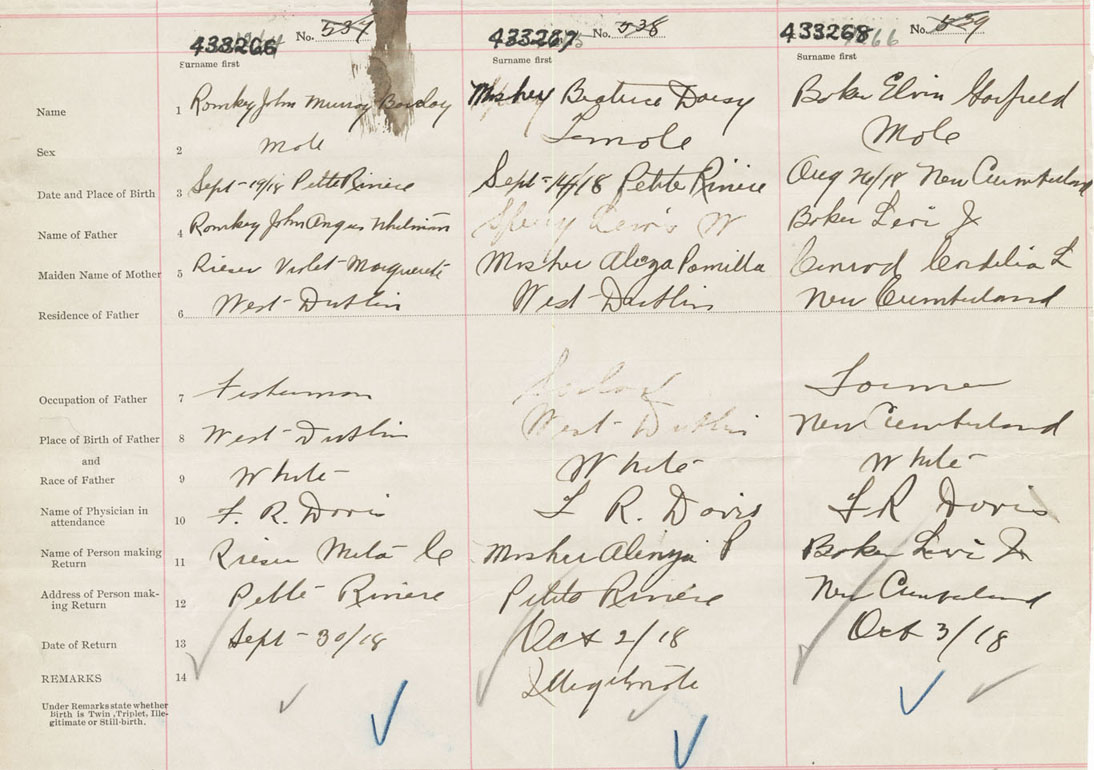 433266 No. 537 433267 No. 538 433268 No. 539
Surname first Surname first Surname first
Name 1 Romkey John Murray Barclay Mosher Beatrice Daisy Baker Elvin Garfield
Sex 2 male Female Male
Date and Place of Birth 3 Sept-19/18 Petite Riviere Sept-14/18 Petite Riviere Aug 26/18 New Cumberland
Name of Father 4 Romkey John Angus Whitman Lewis W Baker Levi J
Maiden Name of Mother 5 Violet Marguerite Mosher Pamilla Conrod Cordelia L
Residence of Father 6 West Dublin West Dublin New Cumberland
Occupation of Father 7 Fisherman Farmer
Place of Birth of Father 8 West Dublin West Dublin New Cumberland
and
Race of Father 9 White White White
Name of Physician in
attendance 10 F. R. Davis F R. Davis F R Davis
Name of Person making
Return 11 Meta C Mosher P Baker Levi J
Address of Person mak-
ing Return 12 Petite Riviere Petite Riviere New Cumberland
Date of Return 13 Sept-30/18 Oct 2/18 Oct 3/18
REMARKS 14 Illegitimate
Under Remarks state whether
Birth is Twin, Triplet, Ille-
gitimate or Still-birth.